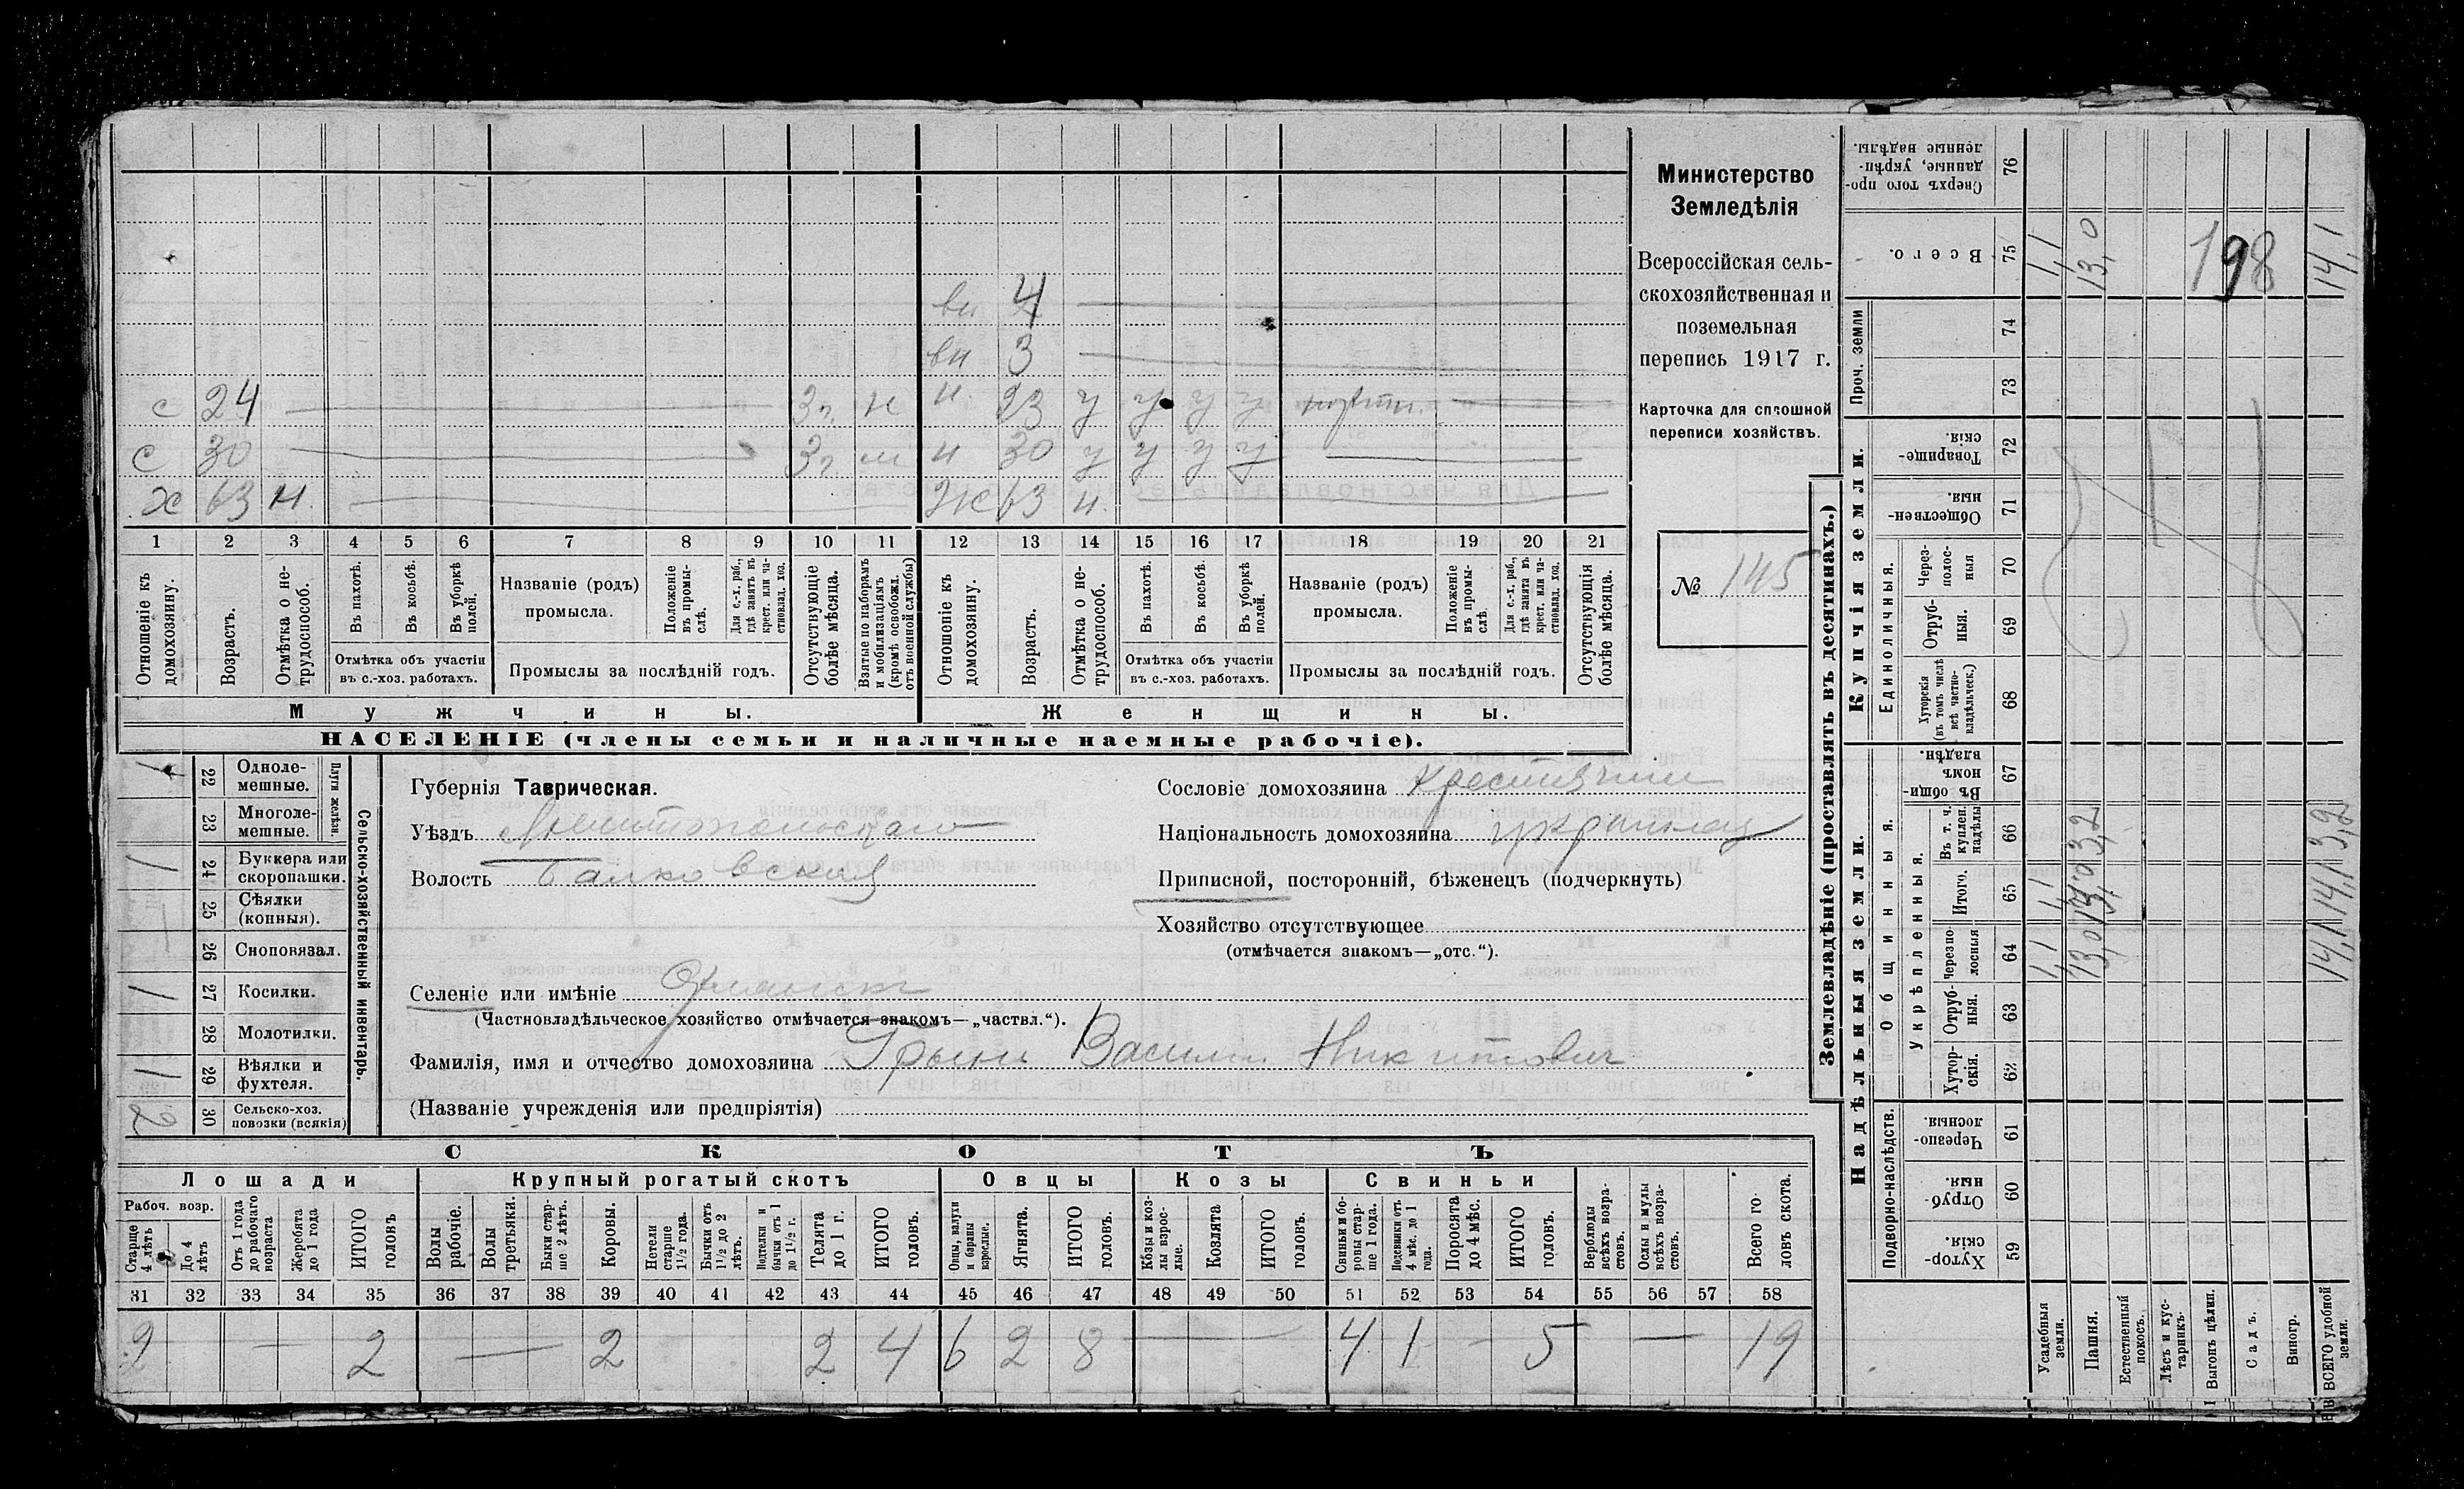 Министерство
Земледѣлія
Всероссійская сель-
скохозяйственная и
поземельная
перепись 1917 г.
Карточка для сплошной
переписи хозяйствъ.
№ 145
вн 4
вн 3
с 24 3г. н 23 у у у у
с 30 3г н 30 у у у у
х 63 н. ж 63 н.
1 2 3 4 5 6 7 8 9 10 11 12 13 14 15 16 17 18 19 20 21
Отношеніе къ домохозяину.
Возрастъ.
Отмѣтка о не-трудоспособ.
Въ пахотѣ.
Въ косьбѣ.
Въ уборкѣ полей.
Отмѣтка объ участіи
въ с.-хоз. работахъ.
Названіе (родъ)
промысла.
Положеніе въ промы-слѣ.
Для с.-х. раб., гдѣ занятъ въ крест. или ча-стновлад. хоз.
Промыслы за послѣдній годъ.
Отсутствующіе болѣе мѣсяца.
Взятые по наборамъ и мобилизаціямъ (кромѣ освобожд. отъ военной службы)
Отношеніе къ домохозяину.
Возрастъ.
Отмѣтка о не-трудоспособ.
Въ пахотѣ.
Въ косьбѣ.
Въ уборкѣ полей.
Отмѣтка объ участіи
въ с.-хоз. работахъ.
Названіе (родъ)
промысла.
Положеніе въ промы-слѣ.
Для с.-х. раб., гдѣ занята въ крест. или ча-стновлад. хоз.
Промыслы за послѣдній годъ.
Отсутствующія болѣе мѣсяца.
Мужчины. Женщины.
НАСЕЛЕНІЕ (члены семьи и наличные наемные рабочіе).
Сельско-хозяйственный инвентарь.
Плуги желѣзн.
22 Одноле-мешные.
23 Многоле-мешные.
1 24 Буккера или скоропашки.
25 Сѣялки (конныя).
26 Сноповязал.
1 27 Косилки.
28 Молотилки.
1 29 Вѣялки и фухтеля.
2 30 Сельско-хоз. повозки (всякія)
Губернія Таврическая.
Уѣздъ
Волость Балковская
Сословіе домохозяина
Національность домохозяина украинец
Приписной, посторонній, бѣженецъ (подчеркнуть)
Хозяйство отсутствующее
(отмѣчается знакомъ—„отс.“).
Селеніе или имѣніе
(Частновладѣльческое хозяйство отмѣчается знакомъ—„частвл.“).
Фамилія, имя и отчество домохозяина Василий Никитович
(Названіе учрежденія или предпріятія)
СКОТЪ
Лошади Крупный рогатый скотъ Овцы Козы Свиньи
Рабоч. возр.
Старше 4 лѣтъ
До 4 лѣтъ
Отъ 1 года до рабочаго возраста
Жеребята до 1 года
ИТОГО головъ
Волы рабочіе.
Волы третьяки.
Быки стар-ше 2 лѣтъ.
Коровы.
Нетели старше 1½ года.
Бычки отъ 1½ до 2 лѣтъ.
Подтелки и бычки отъ 1 до 1½ г.
Телята до 1 г.
ИТОГО головъ.
Овцы, валухи и бараны взрослые.
Ягнята.
ИТОГО головъ.
Козы и коз-лы взрос-лые.
Козлята
ИТОГО головъ.
Свиньи и бо-ровы стар-ше 1 года.
Подсвинки отъ 4 мѣс. до 1 года.
Поросята до 4 мѣс.
ИТОГО головъ.
Верблюды всѣхъ возра-стовъ.
Ослы и мулы всѣхъ возра-стовъ.
Всего го-ловъ скота.
31 32 33 34 35 36 37 38 39 40 41 42 43 44 45 46 47 48 49 50 51 52 53 54 55 56 57 58
2 — 2 — 2 2 4 6 2 8 — 4 1 - 5 — 19
Землевладѣніе (проставлять въ десятинахъ.)
Надѣльныя земли. Купчія земли. Проч. земли
Подворно-наслѣдств.
Хутор-скія. 59
Отруб-ныя. 60
Черезпо-лосныя. 61
Общинныя.
Укрѣпленныя.
Хутор-скія. 62
Отруб-ныя. 63
Черезпо-лосныя 64
Итого. 65
Въ т. ч. куплен. надѣлы 66
Въ общин-номъ владѣн. 67
Единоличныя.
Хуторскія (въ томъ числѣ всѣ частно-владѣльческ.) 68
Отруб-ныя. 69
Через-полос-ныя 70
Обществен-ныя. 71
Товарище-скія. 72
73
74
Всего. 75
Сверхъ того про-данные, укрѣп-ленные надѣлы. 76
Усадебныя земли. 1,1 1,1 1,1
Пашня. 13,0 13,0 3,2 13,0
Естественный покосъ.
Лѣсъ и кус-тарникъ.
Выгонъ цѣлин.
Садъ.
Виногр.
ВСЕГО удобной земли. 14,1 14,1 3,2 14,1
198